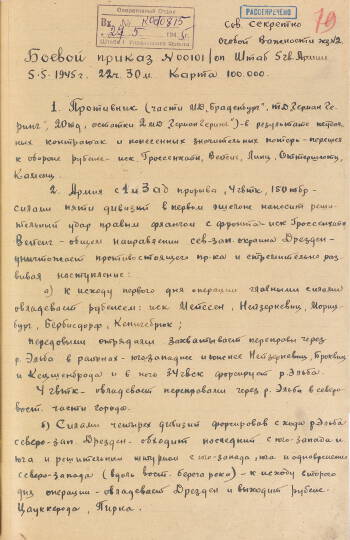 Оперативный Отдел
Вх. № 00815
27 5 1945 г.
РАССЕКРЕЧЕНО
Сов Секретно
Особой Важности экз №2.
19
Боевой приказ №00101/оп Штаб 5 гв. Армии
5.5.1945 г. 22ч. 30м. Карта 100.000.
1. Противник (части ИД „Бранденбург", тД „Герман Ге
ринг", 20тд, остатки 2 мД „Герман Геринг") - в результате неудач
ных контратак и понесенных значительных потерь - перешел
к обороне рубеже - иск Гроссенхайн,
Каменц.
2. Армия с 1 и 3 ад прорыва, 4 гвтк, 150 тбр -
силами пяти дивизий в первом эшелоне наносит реши
тельный удар правым флангом с фронта - иск Гроссенхайн
общем направлении сев-зап. окраина Дрезден -
уничтожает противостоящего пр-ка и стремительно раз
вивая наступление:
а) к исходу первого дня операции главными силами
овладевает рубежом: иск Мейссен, Мориц
бург, Кенигсбрюк;
передовыми отрядами захватывает переправы через
р. Эльба в районах - юго-западнее и южнее
и Кецшенброда и в него форсирует р. Эльба.
4 гвтк - овладевает переправами через р. Эльба в северо
вост. части города.
б) Силами четырех дивизий форсировав с хода р Эльба
северо-зап. Дрезден - обходит последний с юго-запада и
юга и решительным штурмом с юго-запада, юга и одновременно
северо-запада (вдоль вост. берега реки) - к исходу второго
дня операции - овладевает Дрезден и выходит рубеж:
Цаукероде, Пирна.